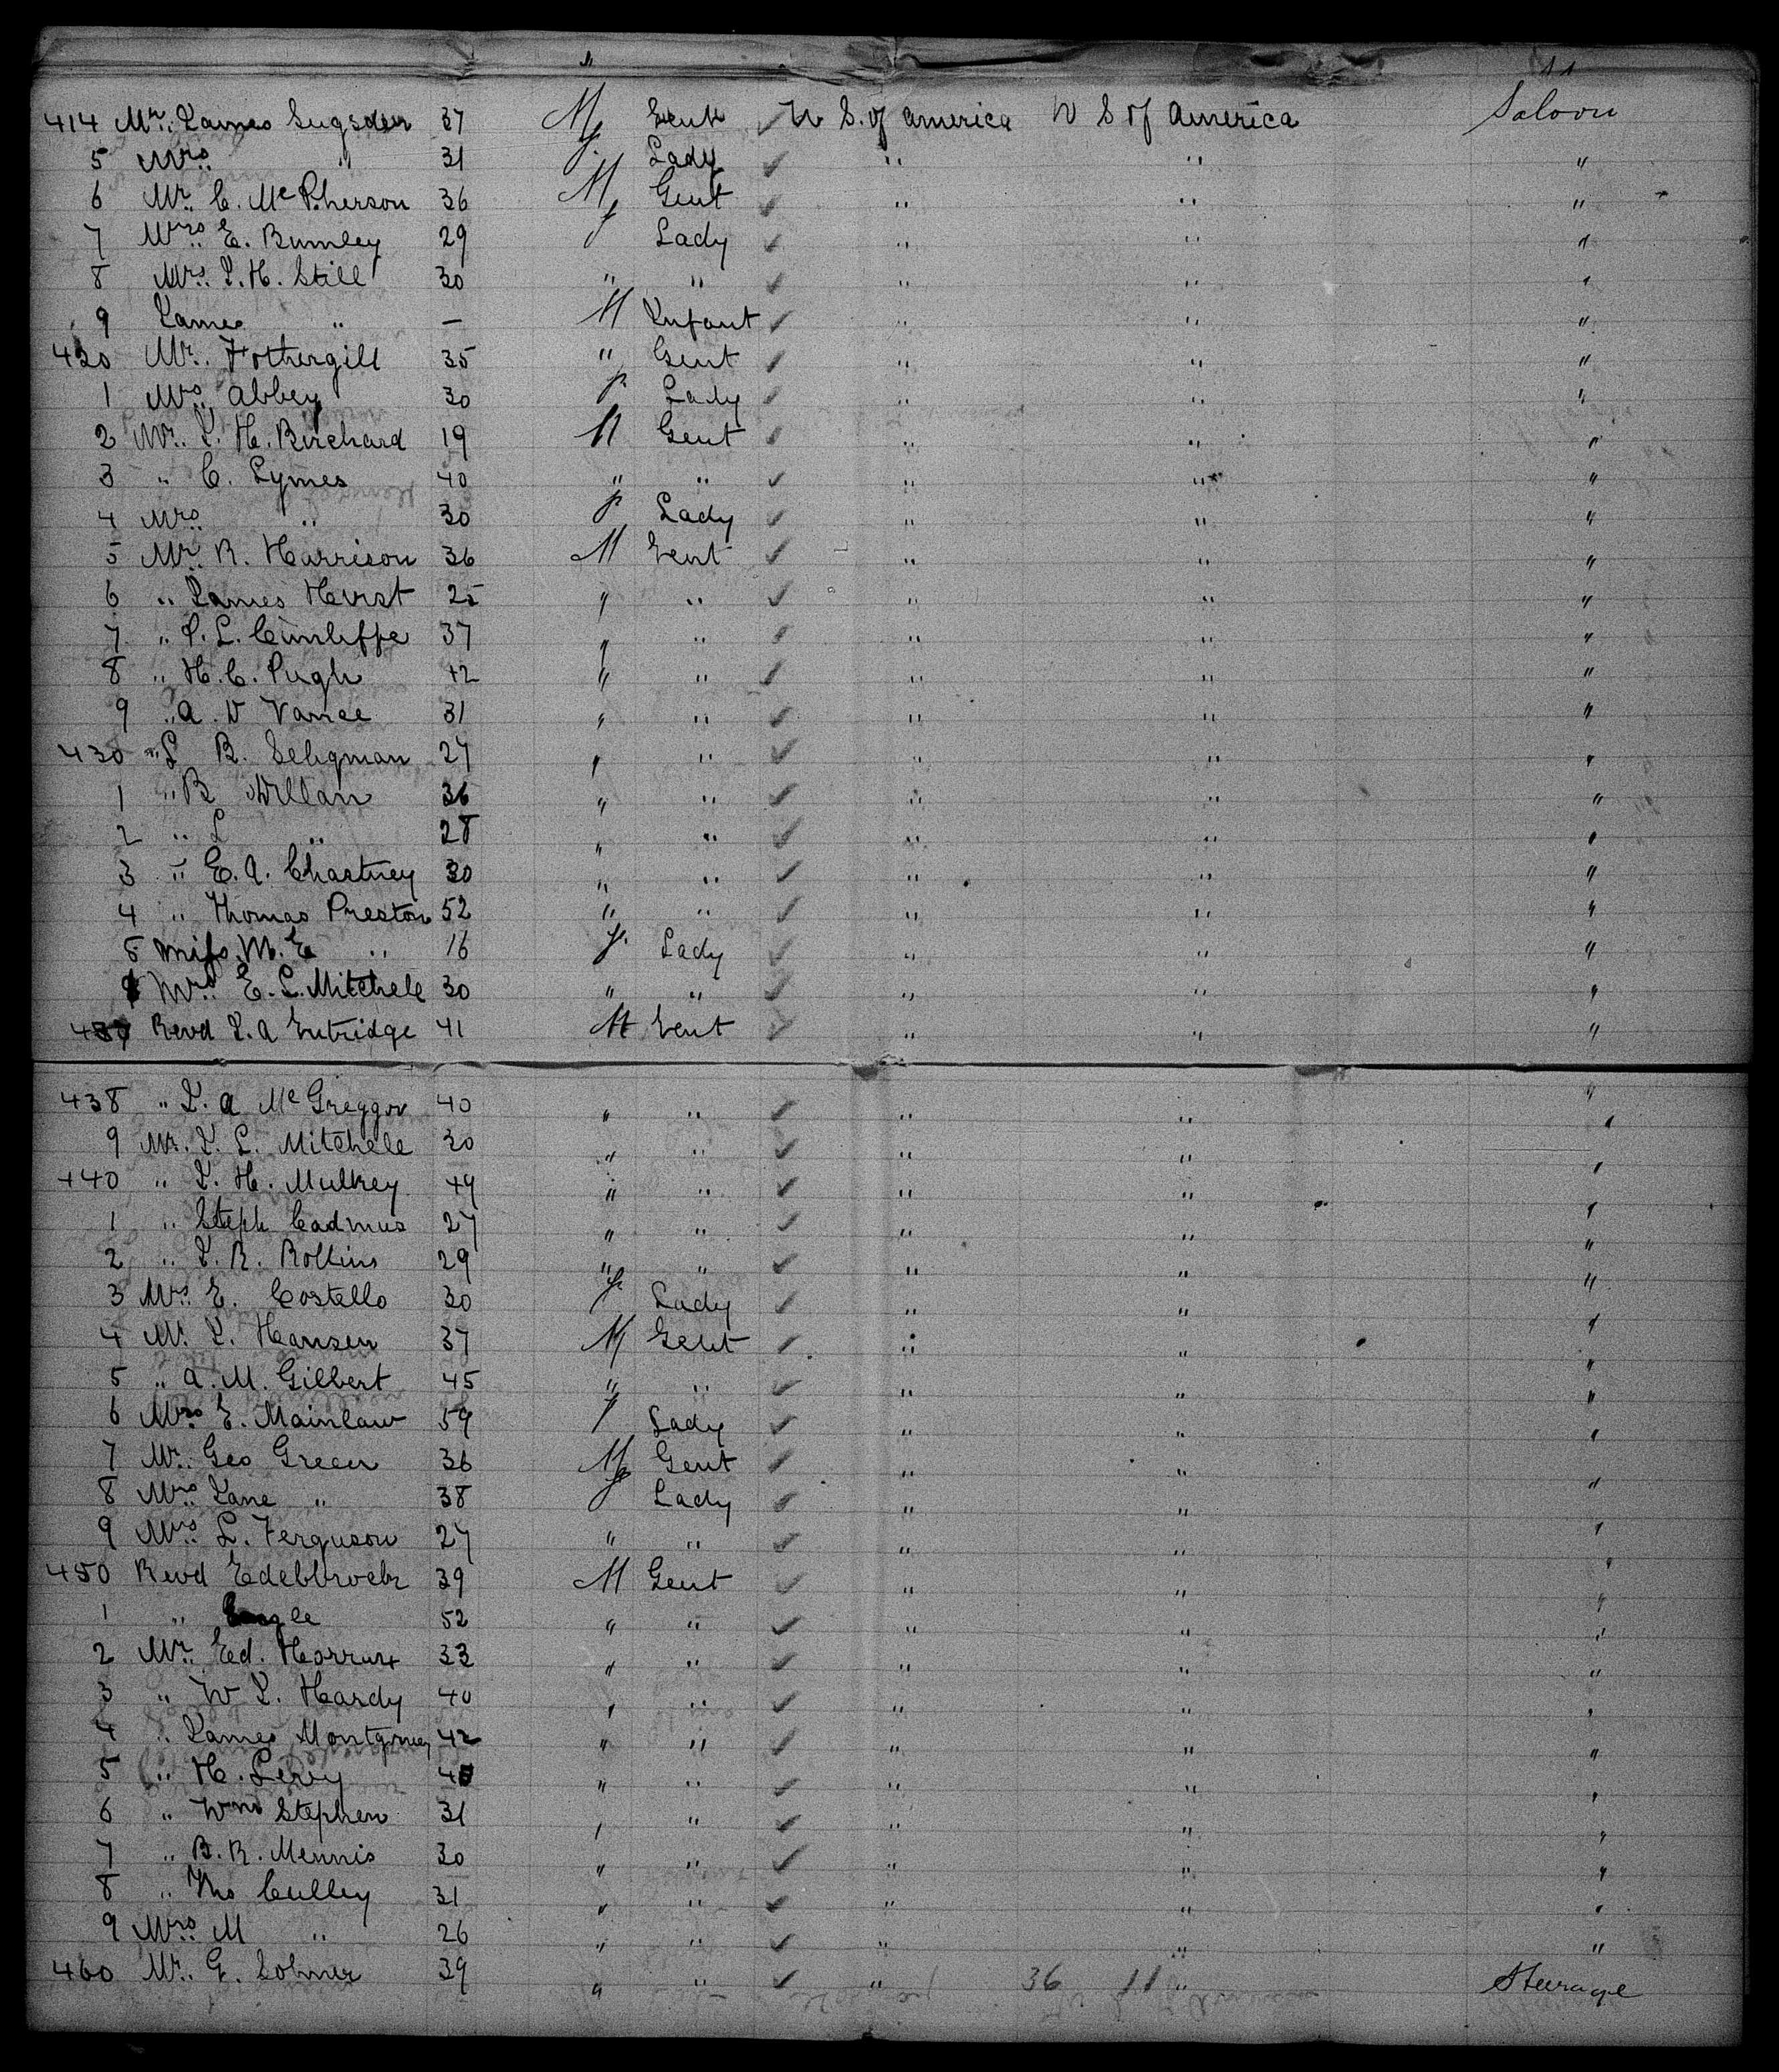 11
414 Mr. James Sugden 37 M Gent ✓ U S. of America U S of America Saloon
5 Mrs " 31 f. Lady ✓ " " "
6 Mr. C. McPherson 36 M Gent ✓ " " "
7 Mrs. E. Bumley 29 f Lady ✓ " " "
8 Mrs. J. H. Still 30 " " ✓ " " "
9 James " — M Infant ✓ " " "
420 Mr. Fothergill 35 " Gent ✓ " " "
1 Mrs. Abbey 30 f Lady ✓ " " "
2 Mr. J. H. Birchard 19 M Gent ✓ " " "
3 " C. Lymes 40 " " ✓ " " "
4 Mrs. " 30 f Lady ✓ " " "
5 Mr. R. Harrison 36 M Gent ✓ " " "
6 " James Hurst 25 " " ✓ " " "
7 " P. L. Cunliffe 37 " " ✓ " " "
8 " H. C. Pugh 42 " " ✓ " " "
9 " A. V Vance 31 " " ✓ " " "
430 " L R. Seligman 27 " " ✓ " " "
1 " R Willan 36 " " ✓ " " "
2 " L " 28 " " ✓ " " "
3 " E. A. Chastney 30 " " ✓ " " "
4 " Thomas Preston 52 " " ✓ " " "
5 Miss. M. E " 16 f. Lady ✓ " " "
Mrs. E. L. Mitchele 30 " " ✓ " " "
437 Revd J. A 41 M Gent ✓ " " "
438 " J. A McGreggor 40 " " ✓ " " "
9 Mr. J. L. Mitchele 30 " " ✓ " " "
440 " J. H. Mulkey 49 " " ✓ " " "
1 " Steph Cadmus 27 " " ✓ " " "
2 " J. R. Rollins 29 " " ✓ " " "
3 Mrs. E. Costello 30 f. Lady ✓ " " "
4 Mr. J. Hansen 37 M Gent ✓ " " "
5 " A. M. Gilbert 45 " " ✓ " " "
6 Mrs. E. Mainlaw 59 f Lady ✓ " " "
7 Mr. Geo Green 36 M Gent ✓ " " "
8 Mrs. Jane " 38 f Lady ✓ " " "
9 Mrs. L. Ferguson 27 " " ✓ " " "
450 Revd 39 M Gent ✓ " " "
1 " 52 " " ✓ " " "
2 Mr. Ed. 33 " " ✓ " " "
3 " W J. Hardy 40 " " ✓ " " "
4 " James Montgomey 42 " " ✓ " " "
5 " H. Levy " " ✓ " " "
6 " Wm Stephen 31 " " ✓ " " "
7 " B. R. Mennis 30 " " ✓ " " "
8 " Tho Culley 31 " " ✓ " " "
9 Mrs. M " 26 " " ✓ " " "
460 Mr. G. 39 " " ✓ " 36 11 " Steerage